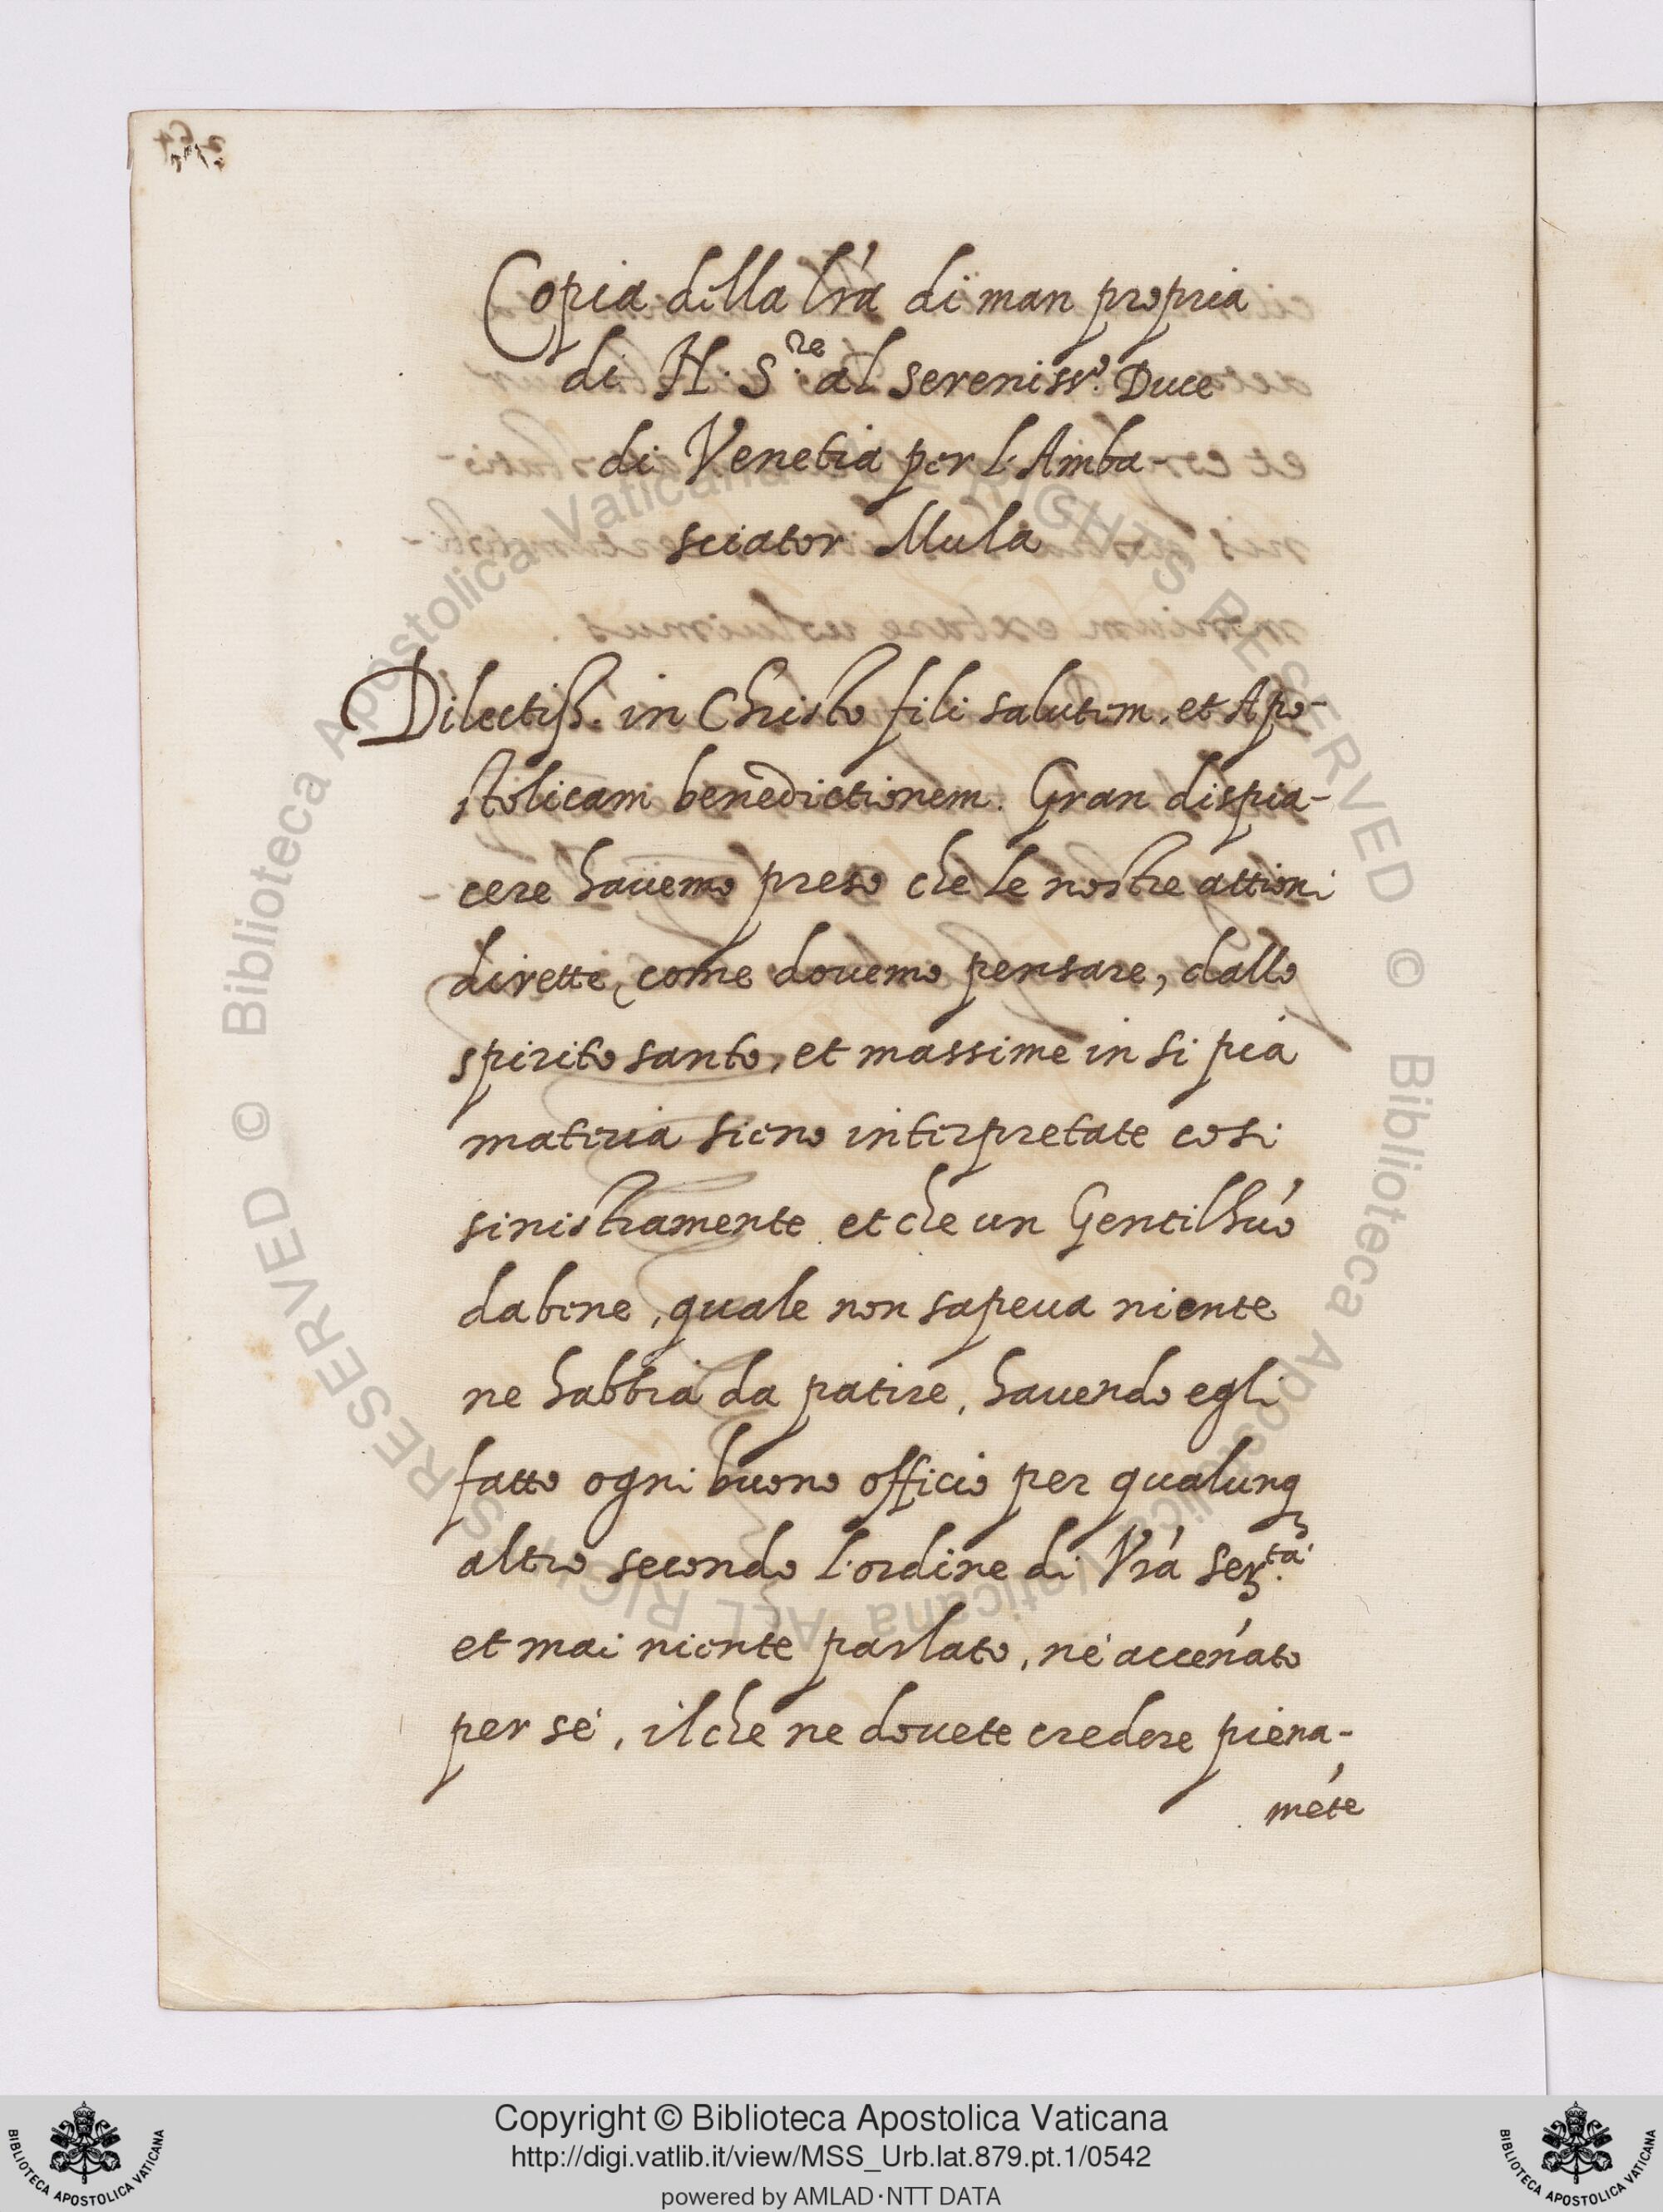 Copia della lr̃a di man propria
di N. S.re al sereniss.o Duce
di Venetia per l'Amba-
sciator Mula
Dilectiss. in Christo fili salutem, et Apo-
stolicam benedictionem. Gran dispia-
cere hauemo preso che le nostre attioni
dirette, come douemo pensare, dallo
spirito santo, et massime in si pia
materia sieno interpretate così
sinistramente et che un Gentilhuõ
dabene, quale non sapeua niente
ne habbia da patire, hauendo egli
fatto ogni buono officio per qualunq3
altro secondo l'ordine di Vr̃a Ser.tà
et mai niente parlato, nè accẽnato
per sè, ilche ne douete credere piena-
mẽte
© Biblioteca Apostolica Vaticana ALL RIGHTS RESERVED © Biblioteca Apostolica Vaticana ALL RIGHTS RESERVED
BIBLIOTECA APOSTOLICA VATICANA
Copyright © Biblioteca Apostolica Vaticana
http://digi.vatlib.it/view/MSS_Urb.lat.879.pt.1/0542
powered by AMLAD·NTT DATA
BIBLIOTECA APOSTOLICA VATICANA